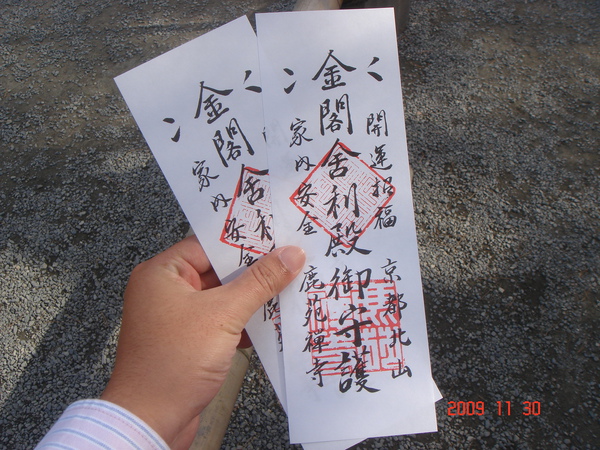 開運招福 京都北山
金閣舎利殿御守護
家内安全 鹿苑禅寺
金閣舎利
家内安全
2009 11 30